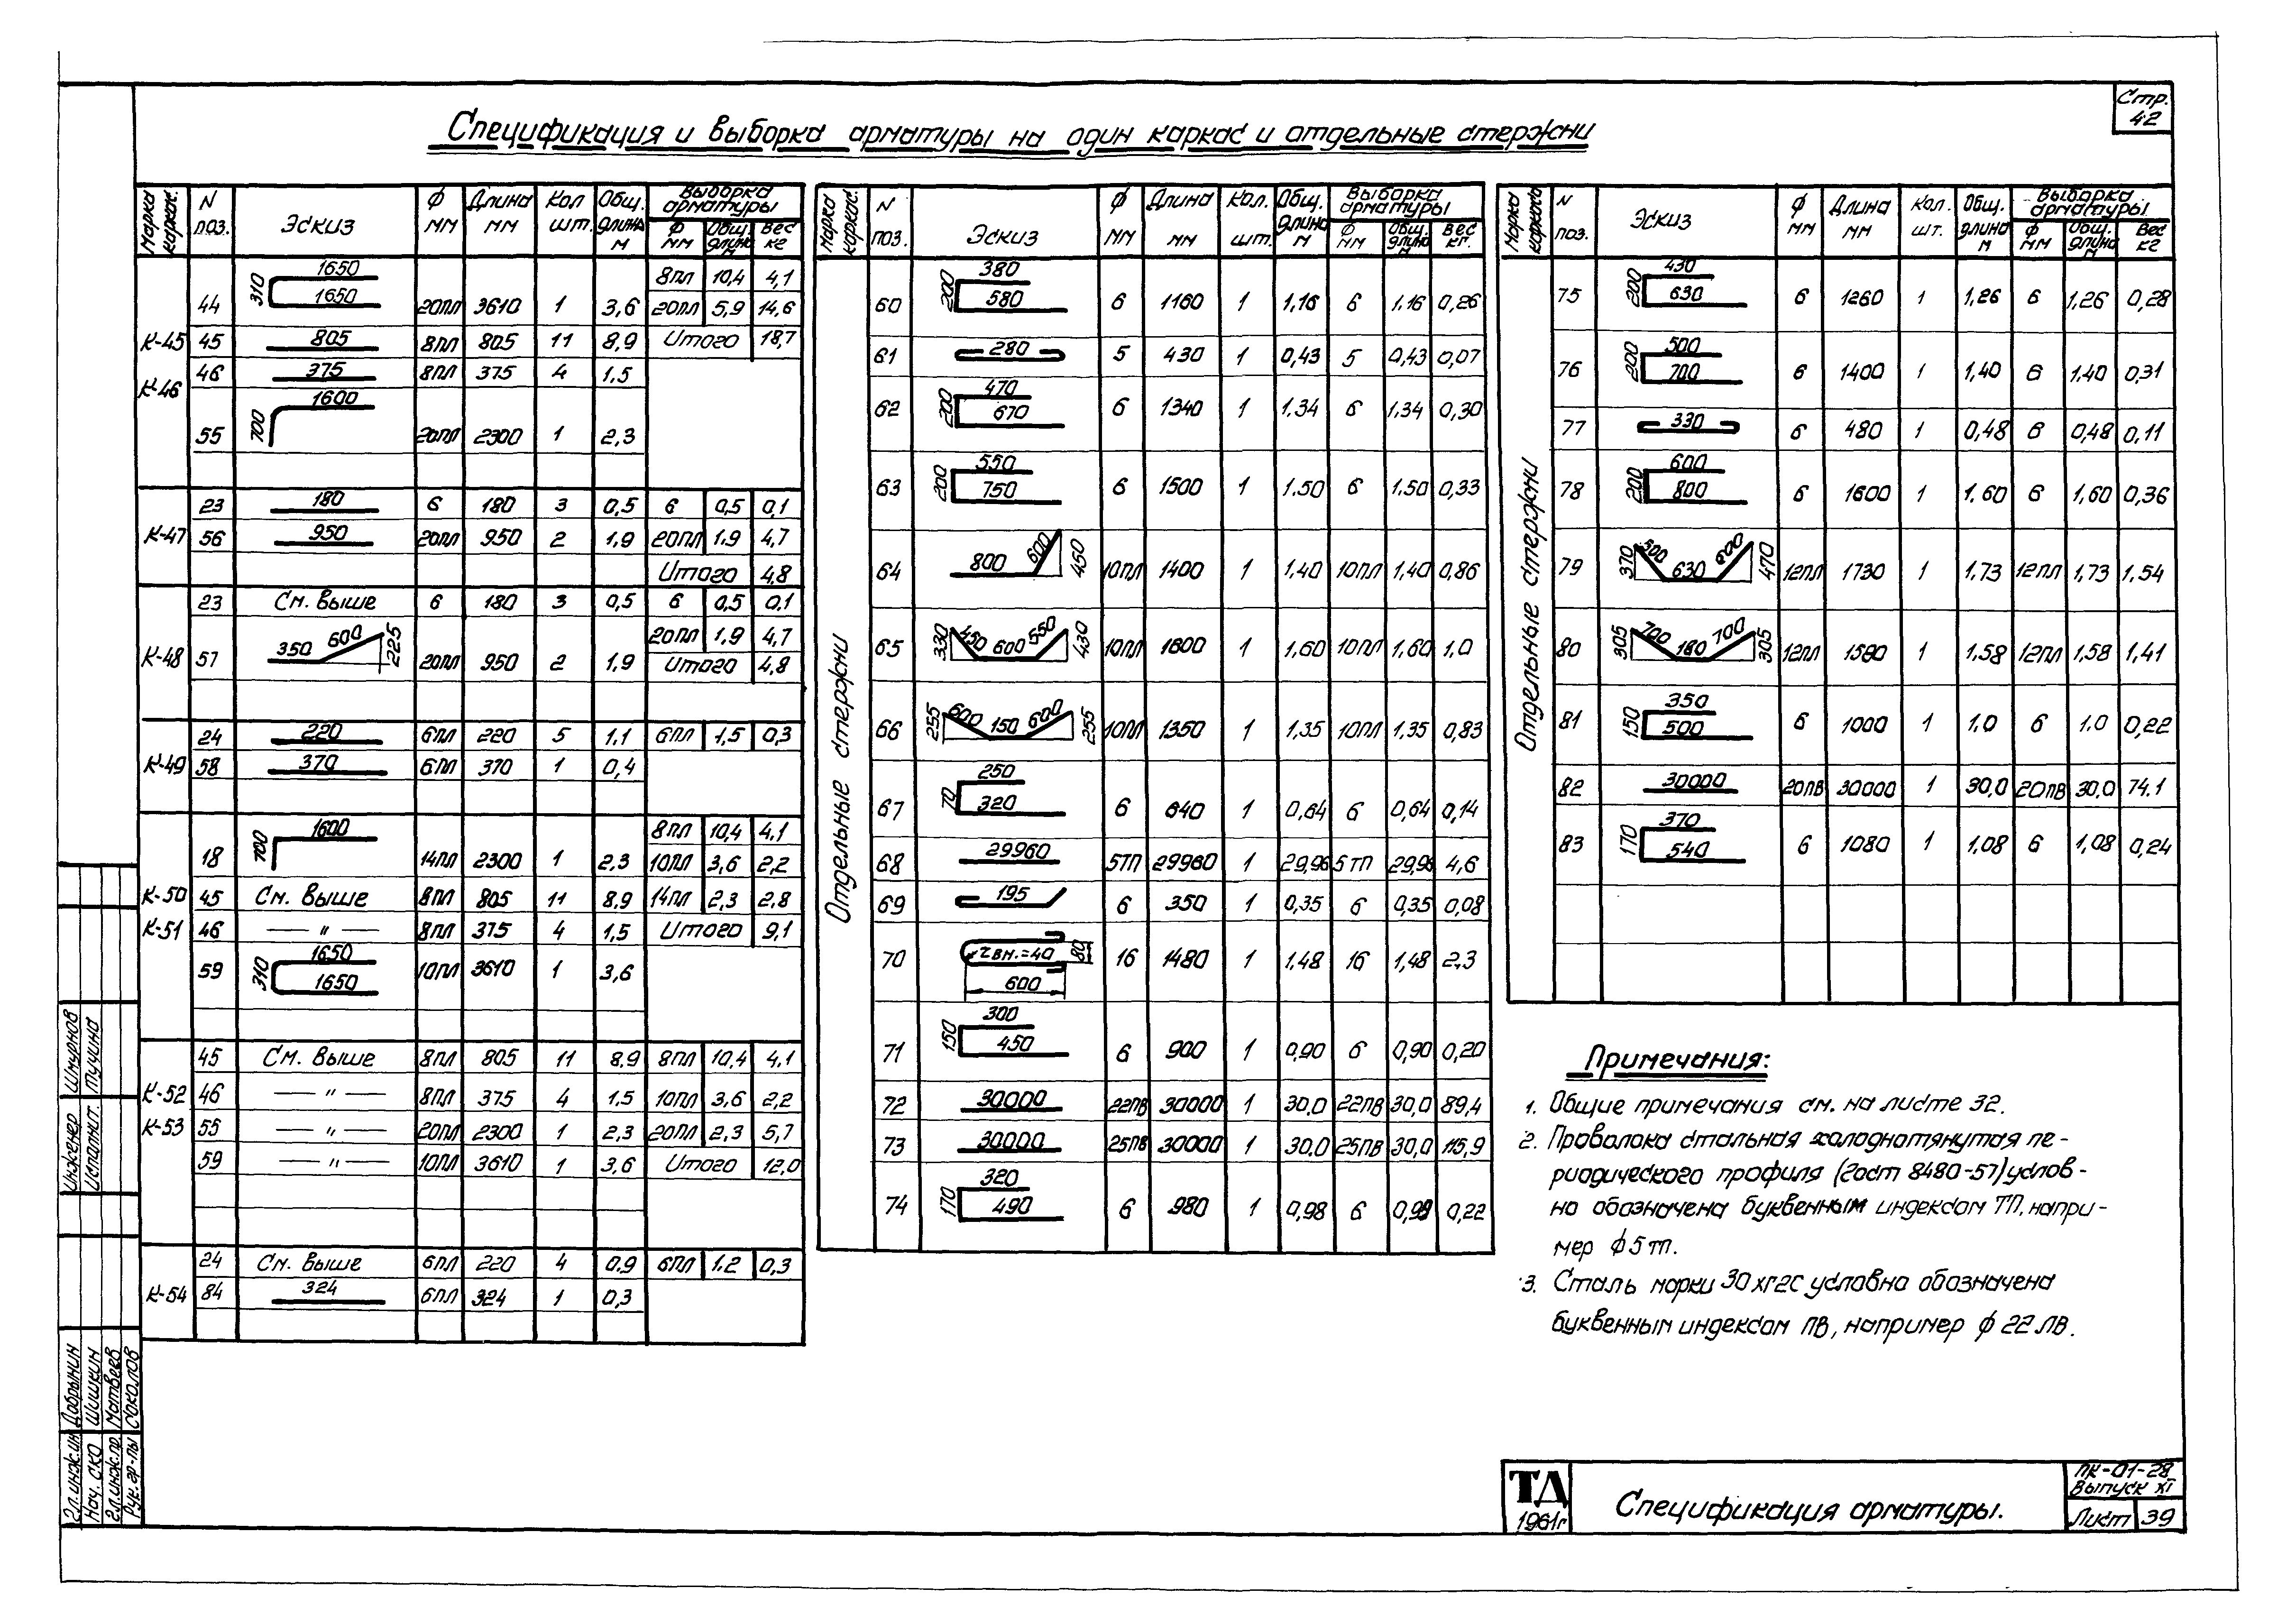 Стр.
42
Спецификация и выборка арматуры на один каркас и отдельные стержни
Марка каркас. N поз. Эскиз Ф мм Длина мм Кол шт. Общ. длина м Выборка арматуры Ф мм Общ. длина м Вес кг
К-45
К-46
44 310 1650 1650 20пл 3610 1 3,6 8пл 10,4 4,1
20пл 5,9 14,6
45 805 8пл 805 11 8,9 Итого 18,7
46 375 8пл 375 4 1.5
55 700 1600 20пл 2300 1 2,3
К-47
23 180 6 180 3 0,5 6 0,5 0,1
56 950 20пл 950 2 1.9 20пл 1.9 4,7
Итого 4,8
К-48
23 См. Выше 6 180 3 0,5 6 0,5 0,1
20пл 1,9 4,7
57 350 600 225 20пл 950 2 1.9 Итого 4,8
К-49
24 220 6пл 220 5 1.1 6пл 1,5 0,3
58 370 6пл 370 1 0,4
К-50
К-51
8пл 10,4 4,1
18 700 1600 14пл 2300 1 2,3 10пл 3,6 2,2
45 См. Выше 8пл 805 11 8,9 14пл 2,3 2,8
46 — " — 8пл 375 4 1,5 Итого 9,1
59 310 1650 1650 10пл 3610 1 3,6
К-52
К-53
45 См. Выше 8пл 805 11 8,9 8пл 10,4 4,1
46 — " — 8пл 375 4 1,5 10пл 3,6 2,2
55 — " — 20пл 2300 1 2,3 20пл 2,3 5,7
59 — " — 10пл 3610 1 3,6 Итого 12,0
К-54
24 См. Выше 6пл 220 4 0,9 6пл 1.2 0,3
84 324 6пл 324 1 0,3
Марка каркас. N поз. Эскиз Ф мм Длина мм Кол. шт. Общ. длина м Выборка арматуры Ф мм Общ. длина м Вес кг.
Отдельные стержни
60 200 380 580 6 1160 1 1,16 6 1,16 0,26
61 280 5 430 1 0,43 5 0,43 0,07
62 200 470 670 6 1340 1 1.34 6 1,34 0,30
63 200 550 750 6 1500 1 1.50 6 1.50 0,33
64 800 600 450 10пл 1400 1 1,40 10пл 1,40 0,86
65 330 450 600 550 430 10пл 1600 1 1,60 10пл 1,60 1,0
66 255 600 150 600 255 10пл 1350 1 1,35 10пл 1.35 0,83
67 70 250 320 6 640 1 0,64 6 0,64 0,14
68 29960 5ТП 29960 1 29,96 5тп 29,96 4,6
69 195 6 350 1 0,35 6 0,35 0,08
70 r вн.=40 80 600 16 1480 1 1,48 16 1,48 2.3
71 150 300 450 6 900 1 0,90 6 0,90 0,20
72 30000 22пв 30000 1 30.0 22пв 30,0 89,4
73 30000 25пв 30000 1 30,0 25пв 30,0 115,9
74 170 320 490 6 980 1 0,98 6 0,98 0,22
Марка каркаса N поз. Эскиз Ф мм Длина мм Кол. шт. Общ. длина м Выборка арматуры Ф мм Общ. длина м Вес кг
Отдельные стержни
75 200 430 630 6 1260 1 1,26 6 1,26 0,28
76 200 500 700 6 1400 1 1,40 6 1.40 0,31
77 330 6 480 1 0,48 6 0,48 0,11
78 200 600 800 6 1600 1 1.60 6 1,60 0,36
79 370 500 630 600 470 12пл 1730 1 1.73 12пл 1,73 1,54
80 305 700 180 700 305 12пл 1580 1 1,58 12пл 1,58 1,41
81 150 350 500 6 1000 1 1.0 6 1.0 0,22
82 30000 20пв 30000 1 30,0 20пв 30,0 74.1
83 170 370 540 6 1080 1 1,08 6 1,08 0,24
Примечания:
1. Общие примечания см. на листе 32.
2. Проволока стальная холоднотянутая пе-
риодического профиля (гост 8480-57) услов-
но обозначена буквенным индексом ТП, напри-
мер ф 5 тп.
3. Сталь марки 30хг2с условно обозначена
буквенным индексом пв, например ф 22 ПВ.
Инженер Шмурнов
Исполнит. Пучина
Гл. инж. ин Добрынин
Нач. СКО Шишкин
Гл. инж. пр. Матвеев
Рук. гр-пы Соколов
ТД
1961г
Спецификация арматуры.
ПК-01-28
Выпуск XI
Лист 39